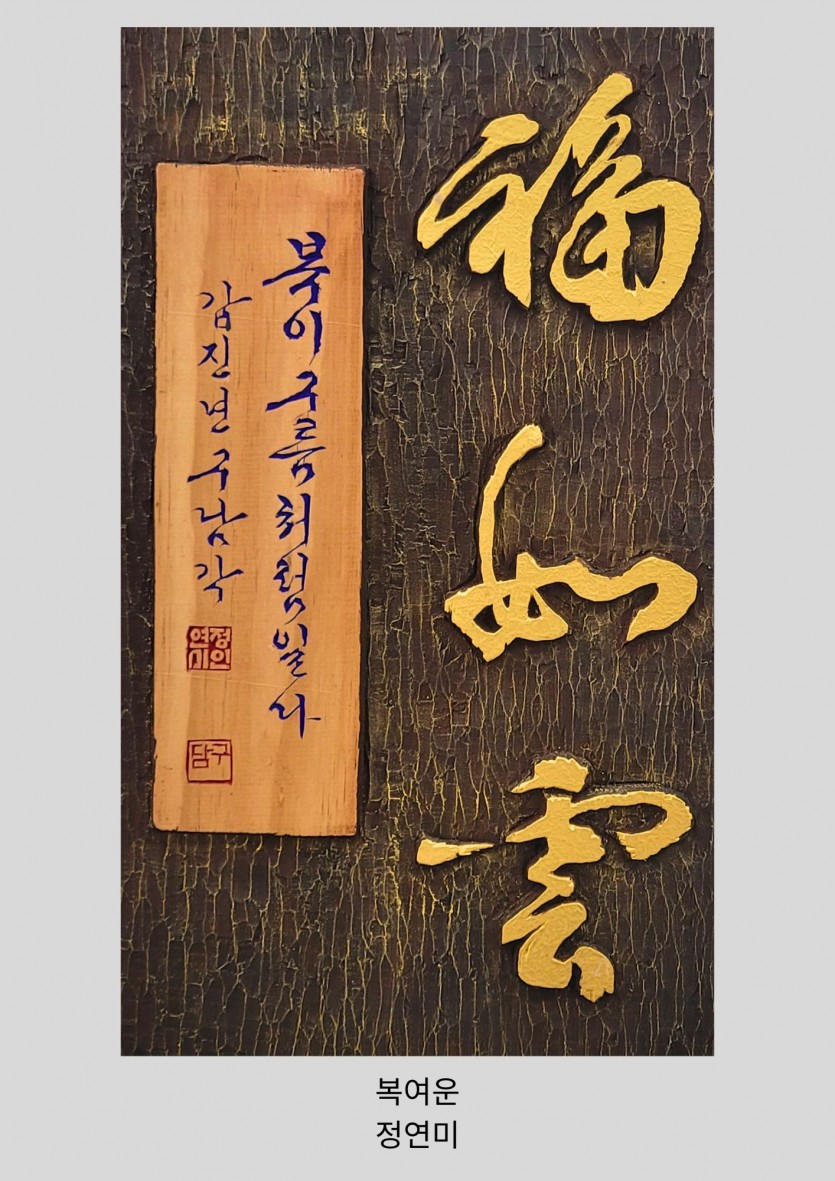 福如雲
복이구름처럼일다
갑진년구담각
정인
연미
구담
복여운
정연미